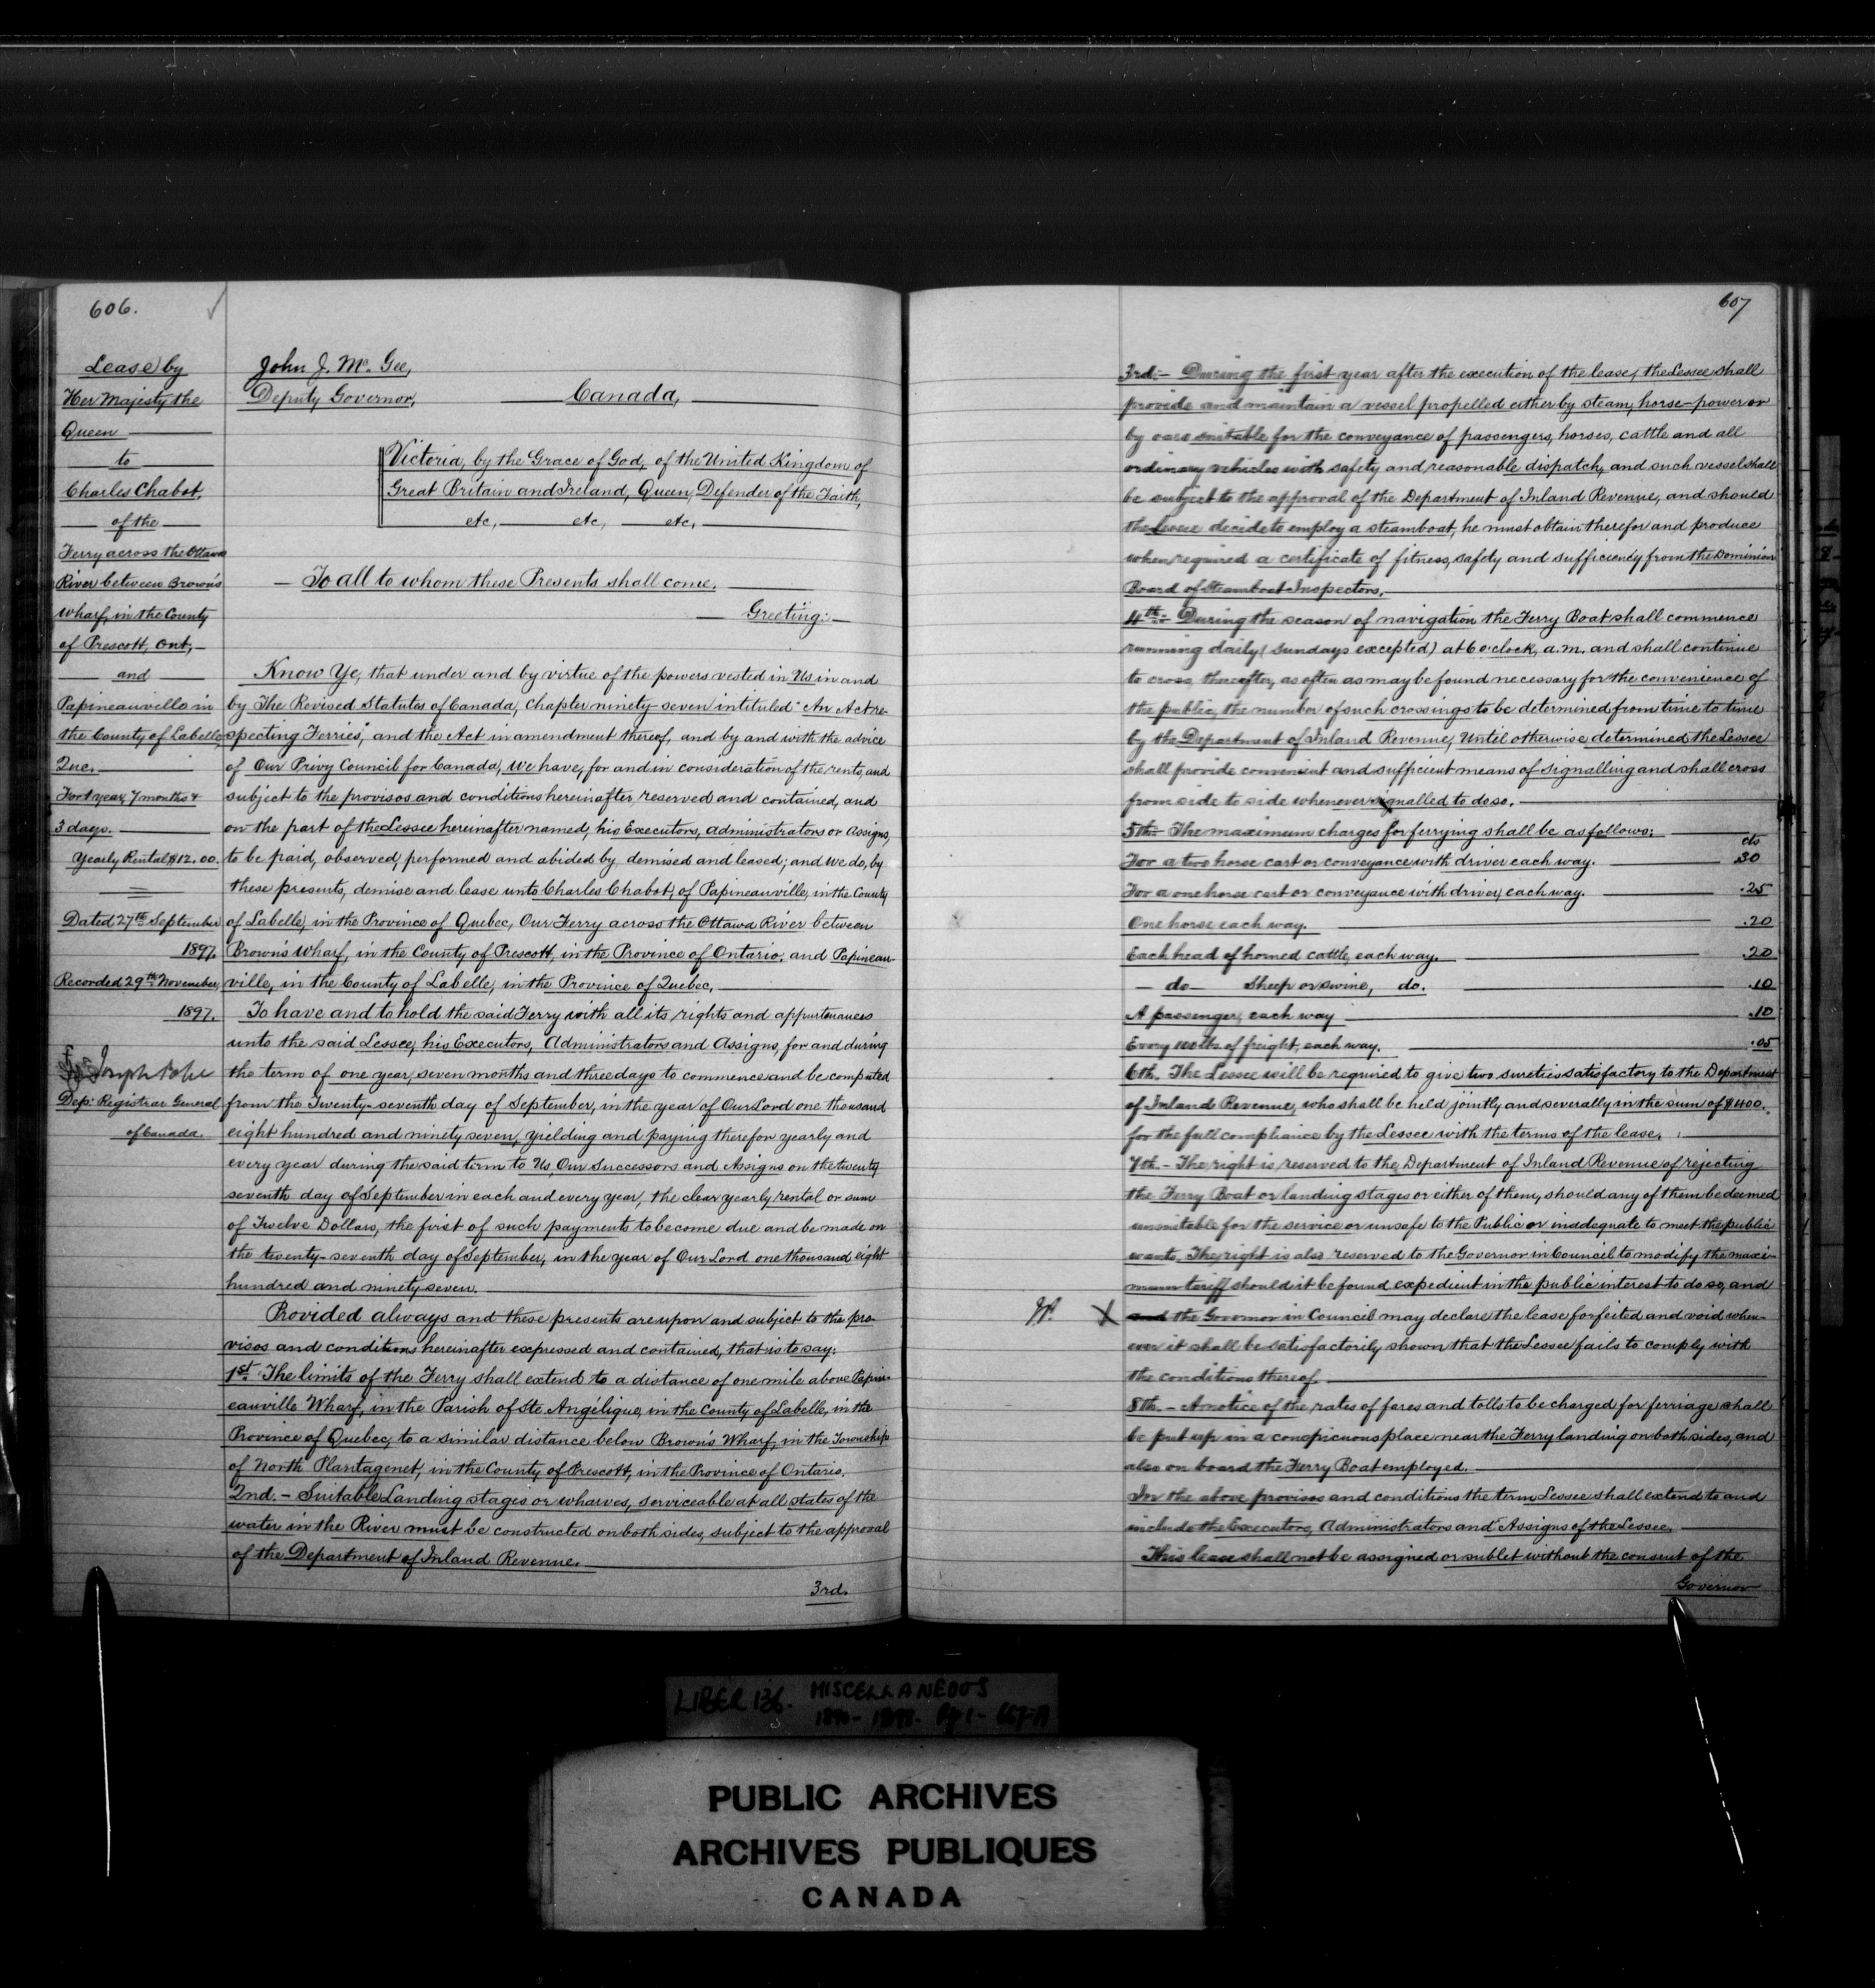 606.
Lease by
Her Majesty the
Queen
to
Charles Chabot,
of the
Ferry across the Ottawa
River between Brown's
Wharf, in the County
of Prescott, Ont,
and
Papineauville in
the County of Labelle
Que.
For 1 year, 7 months &
3 days.
Yearly Rental $12.00.
Dated 27th September
1897.
Recorded 29th November,
1897.
Joseph Pope
Dep: Registrar General
of Canada.
John J. McGee,
Deputy Governor,
Canada,
Victoria, by the Grace of God, of the United Kingdom of
Great Britain and Ireland, Queen, Defender of the Faith,
etc, etc, etc,
To all to whom these Presents shall come,
Greeting:
Know Ye, that under and by virtue of the powers vested in Us in and
by The Revised Statutes of Canada, Chapter ninety-seven intituled "An Act re-
specting Ferries", and the Act in amendment thereof, and by and with the advice
of Our Privy Council for Canada, We have, for and in consideration of the rents, and
subject to the provisos and conditions hereinafter reserved and contained, and
on the part of the Lessee hereinafter named, his Executors, Administrators or Assigns,
to be paid, observed, performed and abided by demised and leased; and We do, by
these presents, demise and lease unto Charles Chabot, of Papineauville, in the County
of Labelle, in the Province of Quebec, Our Ferry across the Ottawa River between
Brown's Wharf, in the County of Prescott, in the Province of Ontario, and Papineau-
ville, in the County of Labelle, in the Province of Quebec,
To have and to hold the said Ferry with all its rights and appurtenances
unto the said Lessee, his Executors, Administrators and Assigns, for and during
the term of one year, seven months and three days to commence and be computed
from the Twenty-seventh day of September, in the year of Our Lord one thousand
eight hundred and ninety seven, yielding and paying therefor yearly and
every year during the said term to Us, Our Successors and Assigns on the twenty
seventh day of September in each and every year, the clear yearly rental or sum
of Twelve Dollars, the first of such payments to become due and be made on
the twenty-seventh day of September, in the year of Our Lord one thousand eight
hundred and ninety seven.
Provided always and these presents are upon and subject to the pro-
visos and conditions hereinafter expressed and contained, that is to say:
1st. The limits of the Ferry shall extend to a distance of one mile above Papin-
eauville Wharf, in the Parish of Ste Angélique, in the County of Labelle, in the
Province of Quebec, to a similar distance below Brown's Wharf, in the Township
of North Plantagenet, in the County of Prescott, in the Province of Ontario.
2nd.- Suitable Landing stages or wharves, serviceable at all states of the
water in the River must be constructed on both sides, subject to the approval
of the Department of Inland Revenue.
3rd.
607
3rd.- During the first year after the execution of the lease, the Lessee shall
provide and maintain a vessel propelled either by steam, horse-power or
by oars suitable for the conveyance of passengers, horses, cattle and all
ordinary vehicles with safety and reasonable dispatch, and such vessel shall
be subject to the approval of the Department of Inland Revenue, and should
the Lessee decide to employ a steamboat, he must obtain therefor and produce
when required a certificate of fitness, safety and sufficiency from the Dominion
Board of Steamboat Inspectors.
4th- During the season of navigation the Ferry Boat shall commence
running daily (Sundays excepted) at 6 o'clock, a.m. and shall continue
to cross thereafter, as often as may be found necessary for the convenience of
the public, the number of such crossings to be determined from time to time
by the Department of Inland Revenue, Until otherwise determined the Lessee
shall provide convenient and sufficient means of signalling and shall cross
from side to side whenever signalled to do so.
5th- The maximum charges for ferrying shall be as follows:
cts
For a two horse cart or conveyance with driver each way. 30
For a one horse cart or conveyance with driver, each way. .25
One horse each way. .20
Each head of horned cattle, each way. .20
- do - Sheep or swine, do. .10
A passenger, each way .10
Every 100 lbs. of freight, each way. .05
6th. The Lessee will be required to give two sureties satisfactory to the Department
of Inland Revenue, who shall be held jointly and severally in the sum of $400.
for the full compliance by the Lessee with the terms of the lease.
7th.- The right is reserved to the Department of Inland Revenue of rejecting
the Ferry Boat or landing stages or either of them, should any of them be deemed
unsuitable for the service or unsafe to the Public or inadequate to meet the public
wants. The right is also reserved to the Governor in Council to modify the maxi-
mum tariff should it be found expedient in the public interest to do so, and
X and the Governor in Council may declare the lease forfeited and void when-
ever it shall be satisfactorily shown that the Lessee fails to comply with
the conditions thereof.
8th.- A notice of the rates of fares and tolls to be charged for ferriage shall
be put up in a conspicuous place near the Ferry landing on both sides, and
also on board the Ferry Boat employed.
In the above provisos and conditions the term Lessee shall extend to and
include the Executors, Administrators and Assigns of the Lessee.
This lease shall not be assigned or sublet without the consent of the
Governor
LIBER 136. MISCELLANEOUS
1896-1898. Pp 1- 667-A
PUBLIC ARCHIVES
ARCHIVES PUBLIQUES
CANADA